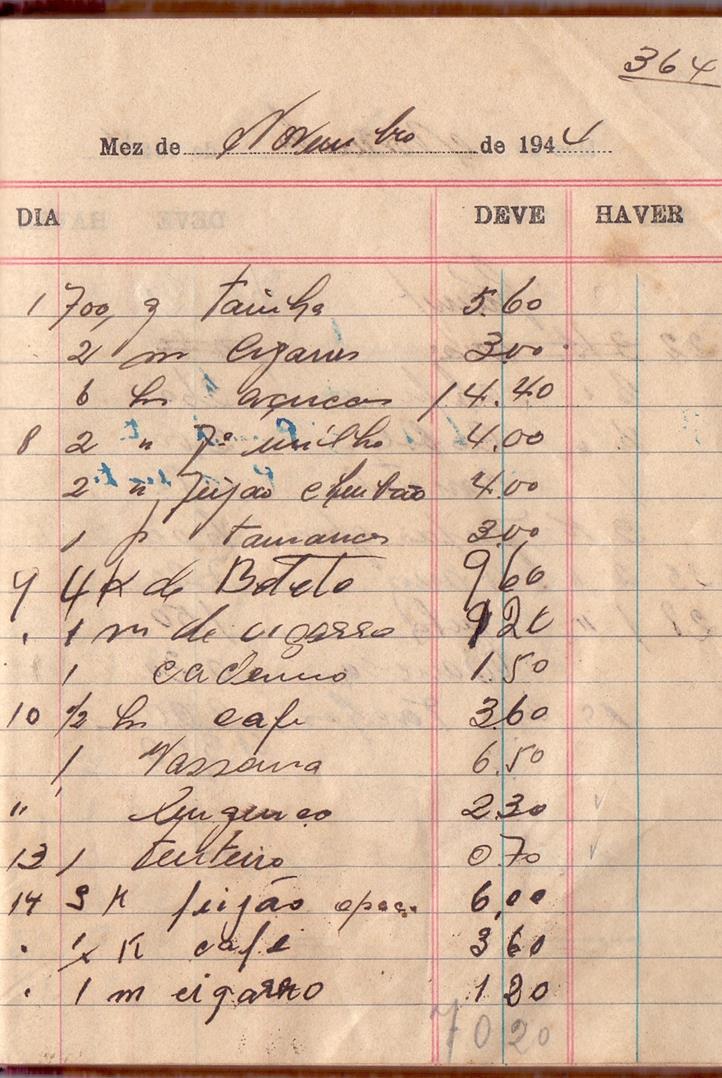 364
Mez de Novembro de 1944
DIA DEVE HAVER
1 700 g tainha 5.60
2 m cigarros 3.00
6 ks açucar 14.40
8 2 " milho 4.00
2 " feijao 4.00
1 p tamancos 3.00
9 4 K de Batata 9 60
. 1 m de cigarro 1 20
1 caderno 1.50
10 1/2 ks cafe 3.60
1 Vassoura 6.50
" 2.30
13 1 tinteiro 0.70
14 3 K feijão 6,00
. 1/2 K café 3 60
. 1 m cigarro 1 20
70 20